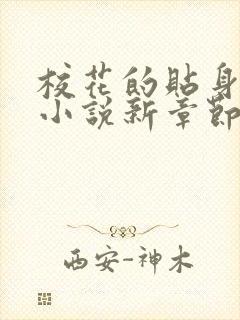 校花的貼身
小說新章節
西安-神木